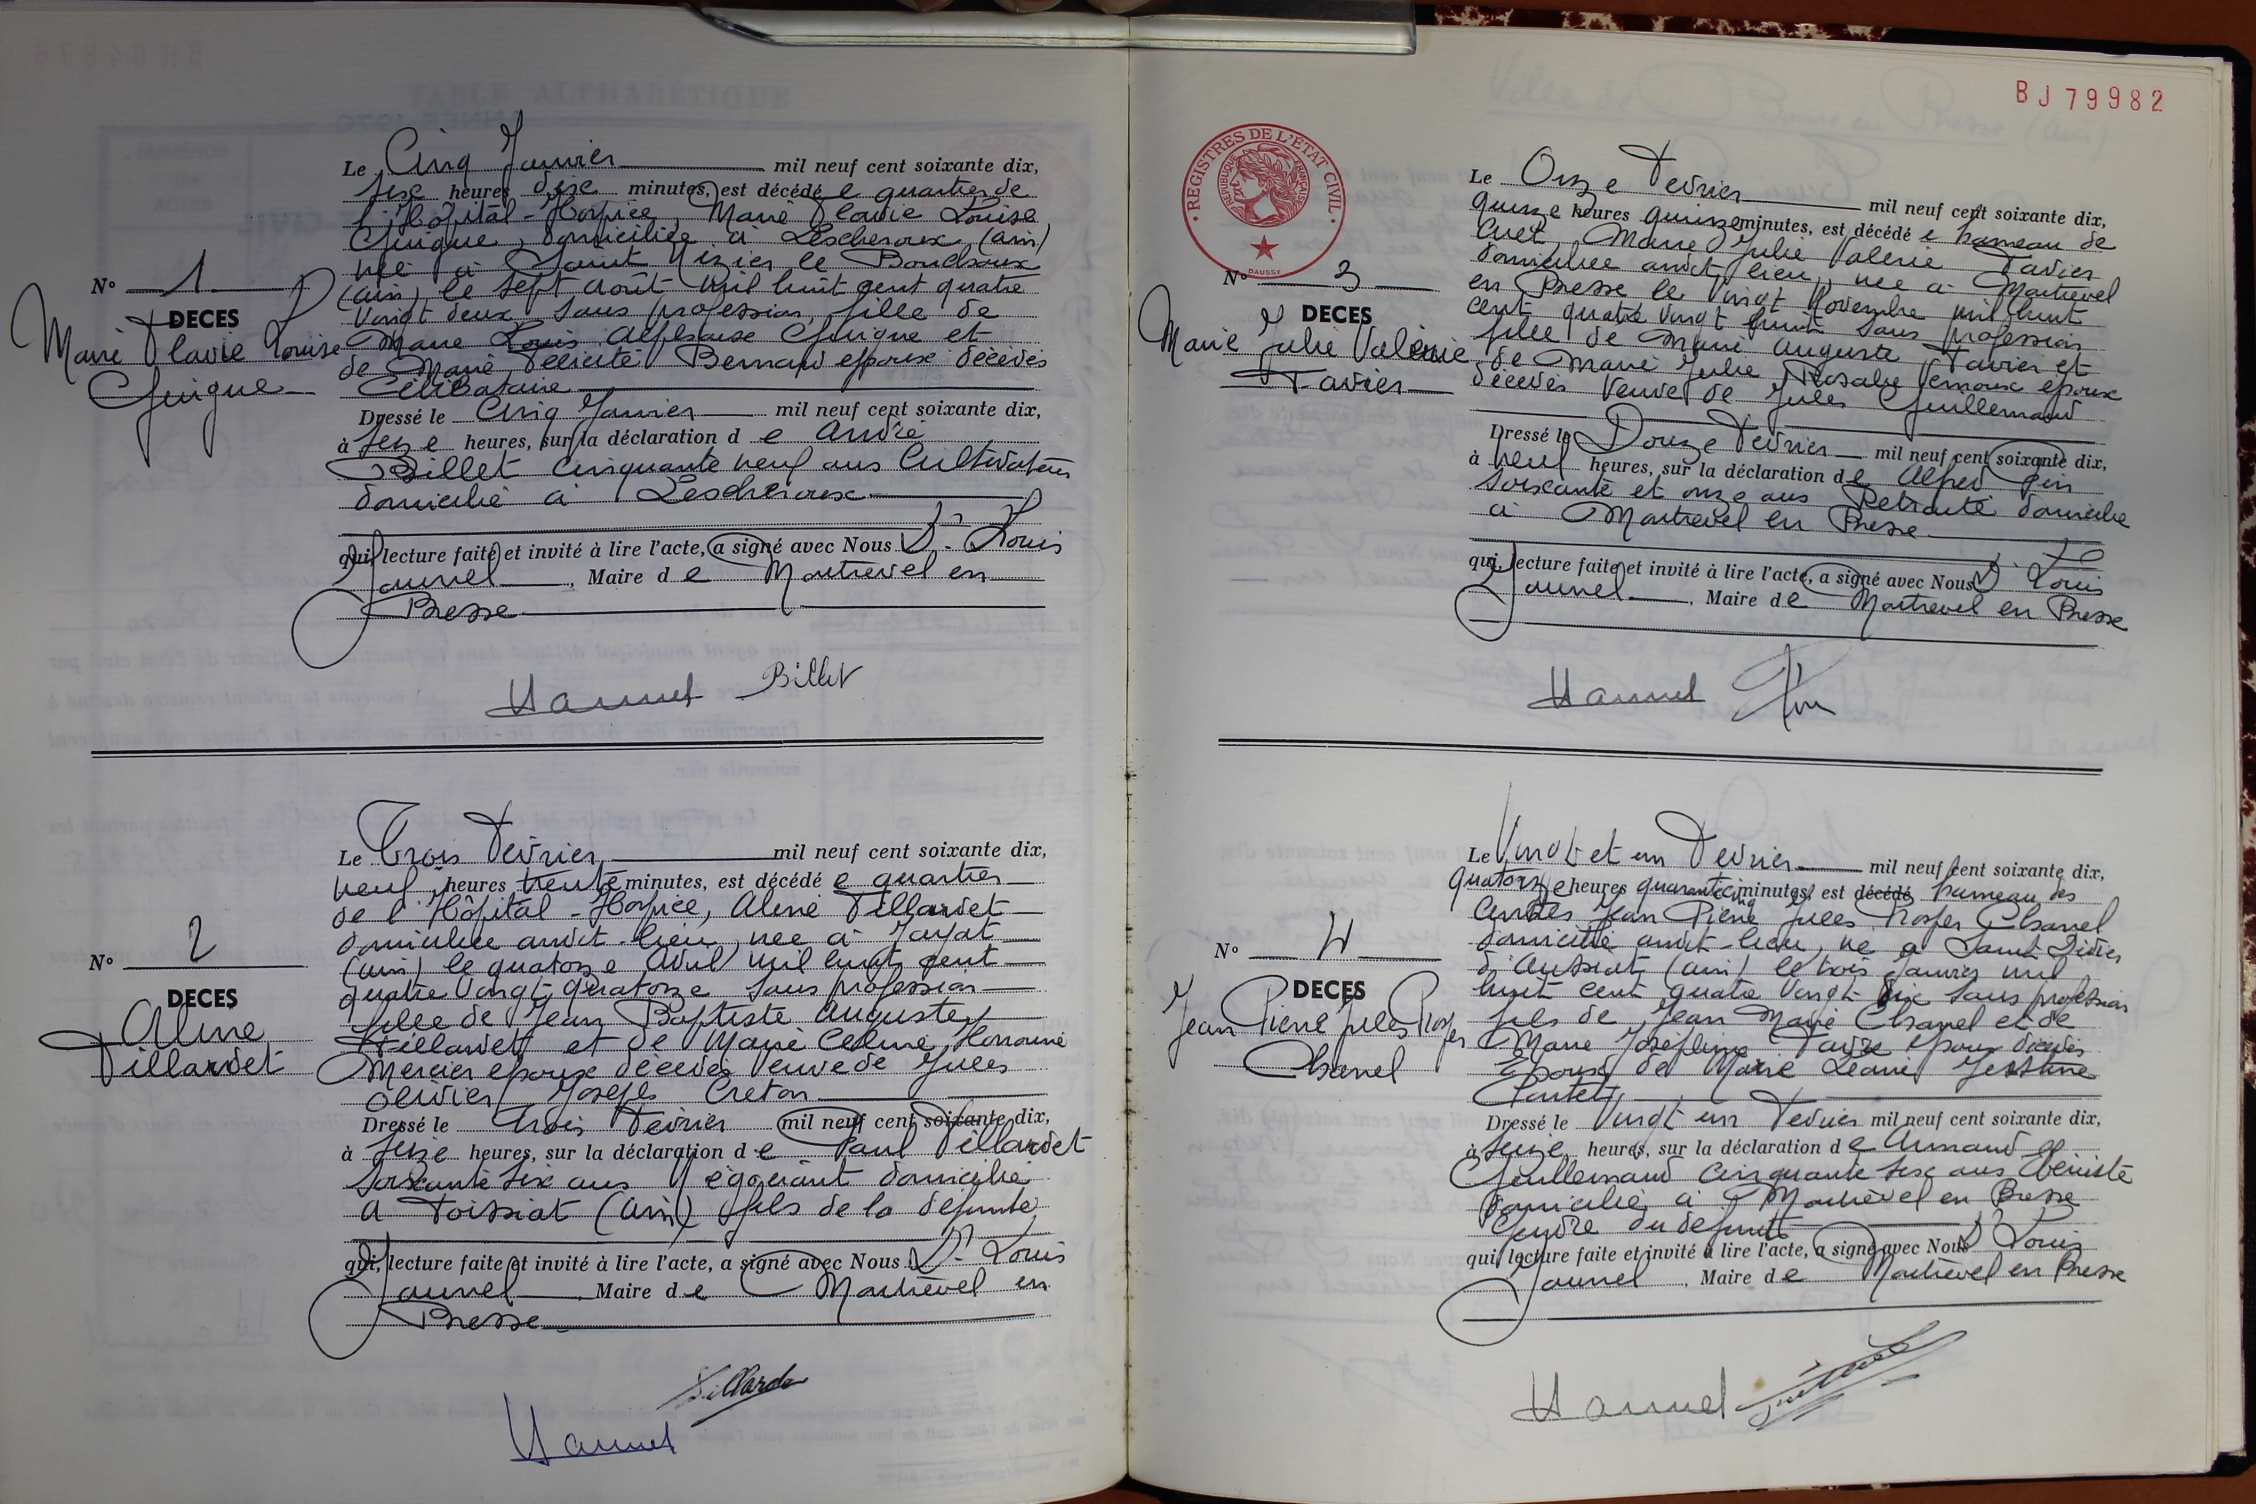 Le Cinq Janvier mil neuf cent soixante dix,
seize heures dix minutes, est décédé e quartier de
l'Hôpital-Hospice, Marie Flavie Louise
Guigue, domiciliée à Lescheroux (ain)
née à Saint Nizier le Bouchoux
(ain) le sept Août mil huit cent quatre
vingt deux sans profession, fille de
Marie Louis Alphonse Guigue et
de Marie Félicité Bernard époux décédés
Célibataire
N° 1
DECES
Marie Flavie Louise
Guigue
Dressé le Cinq Janvier mil neuf cent soixante dix,
à seize heures, sur la déclaration d e André
Billet cinquante neuf ans Cultivateur
domicilié à Lescheroux
qui, lecture faite et invité à lire l'acte, a signé avec Nous Dr Louis
Jaunel, Maire d e Montrevel en
Bresse
Billet
Le Trois Février mil neuf cent soixante dix,
neuf heures trente minutes, est décédé e quartier
de l'Hôpital-Hospice, Aline Fillardet
domiciliée audit-lieu, née à Jayat
(ain) le quatorze Avril mil huit cent
quatre vingt quatorze sans profession
fille de Jean Baptiste Auguste
Fillardet et de Marie Celine
Mercier époux décédés Veuve de Jules
Olivier Joseph Creton
N° 2
DECES
Aline
Fillardet
Dressé le trois Février mil neuf cent soixante dix,
à seize heures, sur la déclaration d e Paul Fillardet
soixante six ans Négociant domicilié
à Foissiat (ain) fils de la défunte
qui, lecture faite et invité à lire l'acte, a signé avec Nous Dr Louis
Jaunel, Maire d e Montrevel en
Bresse
BJ 79982
REGISTRES DE L'ÉTAT CIVIL
RÉPUBLIQUE FRANÇAISE
DAUSSY
Le Onze Février mil neuf cent soixante dix,
quinze heures quinze minutes, est décédé e hameau de
Cuet, Marie Julie Valérie Favier
domiciliée audit lieu, née à Montrevel
en Bresse le Vingt Novembre mil huit
cent quatre vingt huit sans profession
fille de Marie Auguste Favier et
de Marie Julie Rosalie Vernoux époux
décédés Veuve de Jules Guillemaud
N° 3
DECES
Marie Julie Valérie
Favier
Dressé le Douze Février mil neuf cent soixante dix,
à neuf heures, sur la déclaration d e Alfred Pin
soixante et onze ans Retraité domicilié
à Montrevel en Bresse
qui, lecture faite et invité à lire l'acte, a signé avec Nous Dr Louis
Jaunel, Maire d e Montrevel en Bresse
Le Vingt et un Février mil neuf cent soixante dix,
quatorze heures quarante cinq minutes, est décédé hameau des
Jean Pierre Jules Prosper Chanel
domicilié audit-lieu, né à Saint Didier
d'Aussiat (ain) le trois Janvier mil
huit cent quatre vingt dix sans profession
fils de Jean Marie Chanel et de
Marie Josephine Favre époux décédés
Epoux de Marie Léonie
N° 4
DECES
Jean Pierre Jules Prosper
Chanel
Dressé le Vingt un Février mil neuf cent soixante dix,
à seize heures, sur la déclaration d e Armand
Guillemaud cinquante six ans Ebéniste
domicilié à Montrevel en Bresse
Gendre du défunt
qui, lecture faite et invité à lire l'acte, a signé avec Nous Dr Louis
Jaunel, Maire d e Montrevel en Bresse